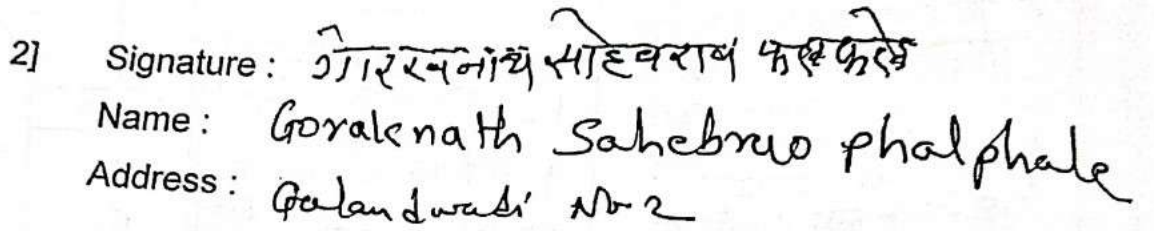 2] Signature : गोरखनाथ साहेबराव फलफले
Name : Goraknath Sahebrao phalphale
Address : Galandwadi No 2